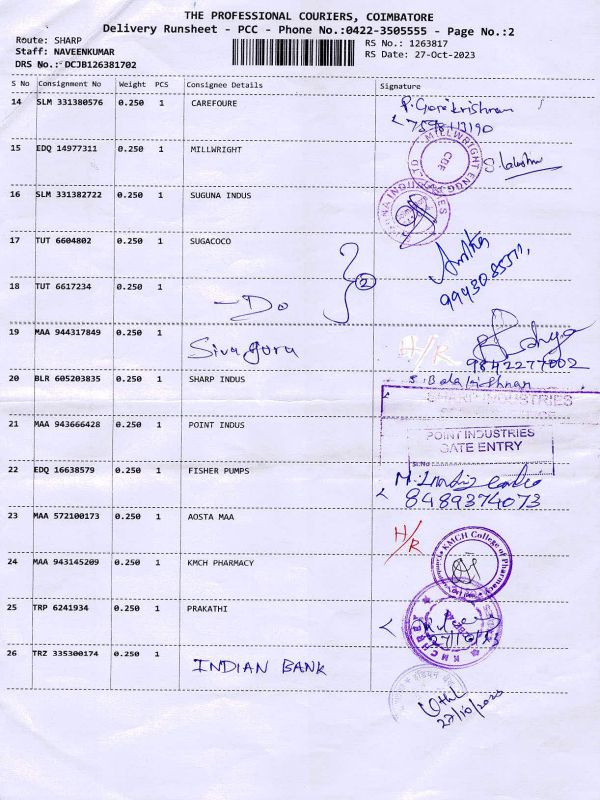 THE PROFESSIONAL COURIERS, COIMBATORE
Delivery Runsheet - PCC - Phone No.:0422-3505555 - Page No.:2
Route: SHARP
Staff: NAVEENKUMAR
DRS No.: DCJB126381702
RS No.: 1263817
RS Date: 27-Oct-2023
S No Consignment No Weight PCS Consignee Details Signature
14 SLM 331380576 0.250 1 CAREFOURE
P. Gopikrishnan
15 EDQ 14977311 0.250 1 MILLWRIGHT
MILLWRIGHT ENGG
CBE
16 SLM 331382722 0.250 1 SUGUNA INDUS
17 TUT 6604802 0.250 1 SUGACOCO
2
18 TUT 6617234 0.250 1 -Do
9943085571,
19 MAA 944317849 0.250 1 Sivaguru
H/R
9842277002
20 BLR 605203835 0.250 1 SHARP INDUS
S. Balakrishnan
SHARP INDUSTRIES
21 MAA 943666428 0.250 1 POINT INDUS
POINT INDUSTRIES
GATE ENTRY
Sl.No
22 EDQ 16638579 0.250 1 FISHER PUMPS
8489374073
23 MAA 572100173 0.250 1 AOSTA MAA
H/R
24 MAA 943145209 0.250 1 KMCH PHARMACY
KMCH College of Pharmacy
25 TRP 6241934 0.250 1 PRAKATHI
27/10/23
26 TRZ 335300174 0.250 1 INDIAN BANK
27/10/2023